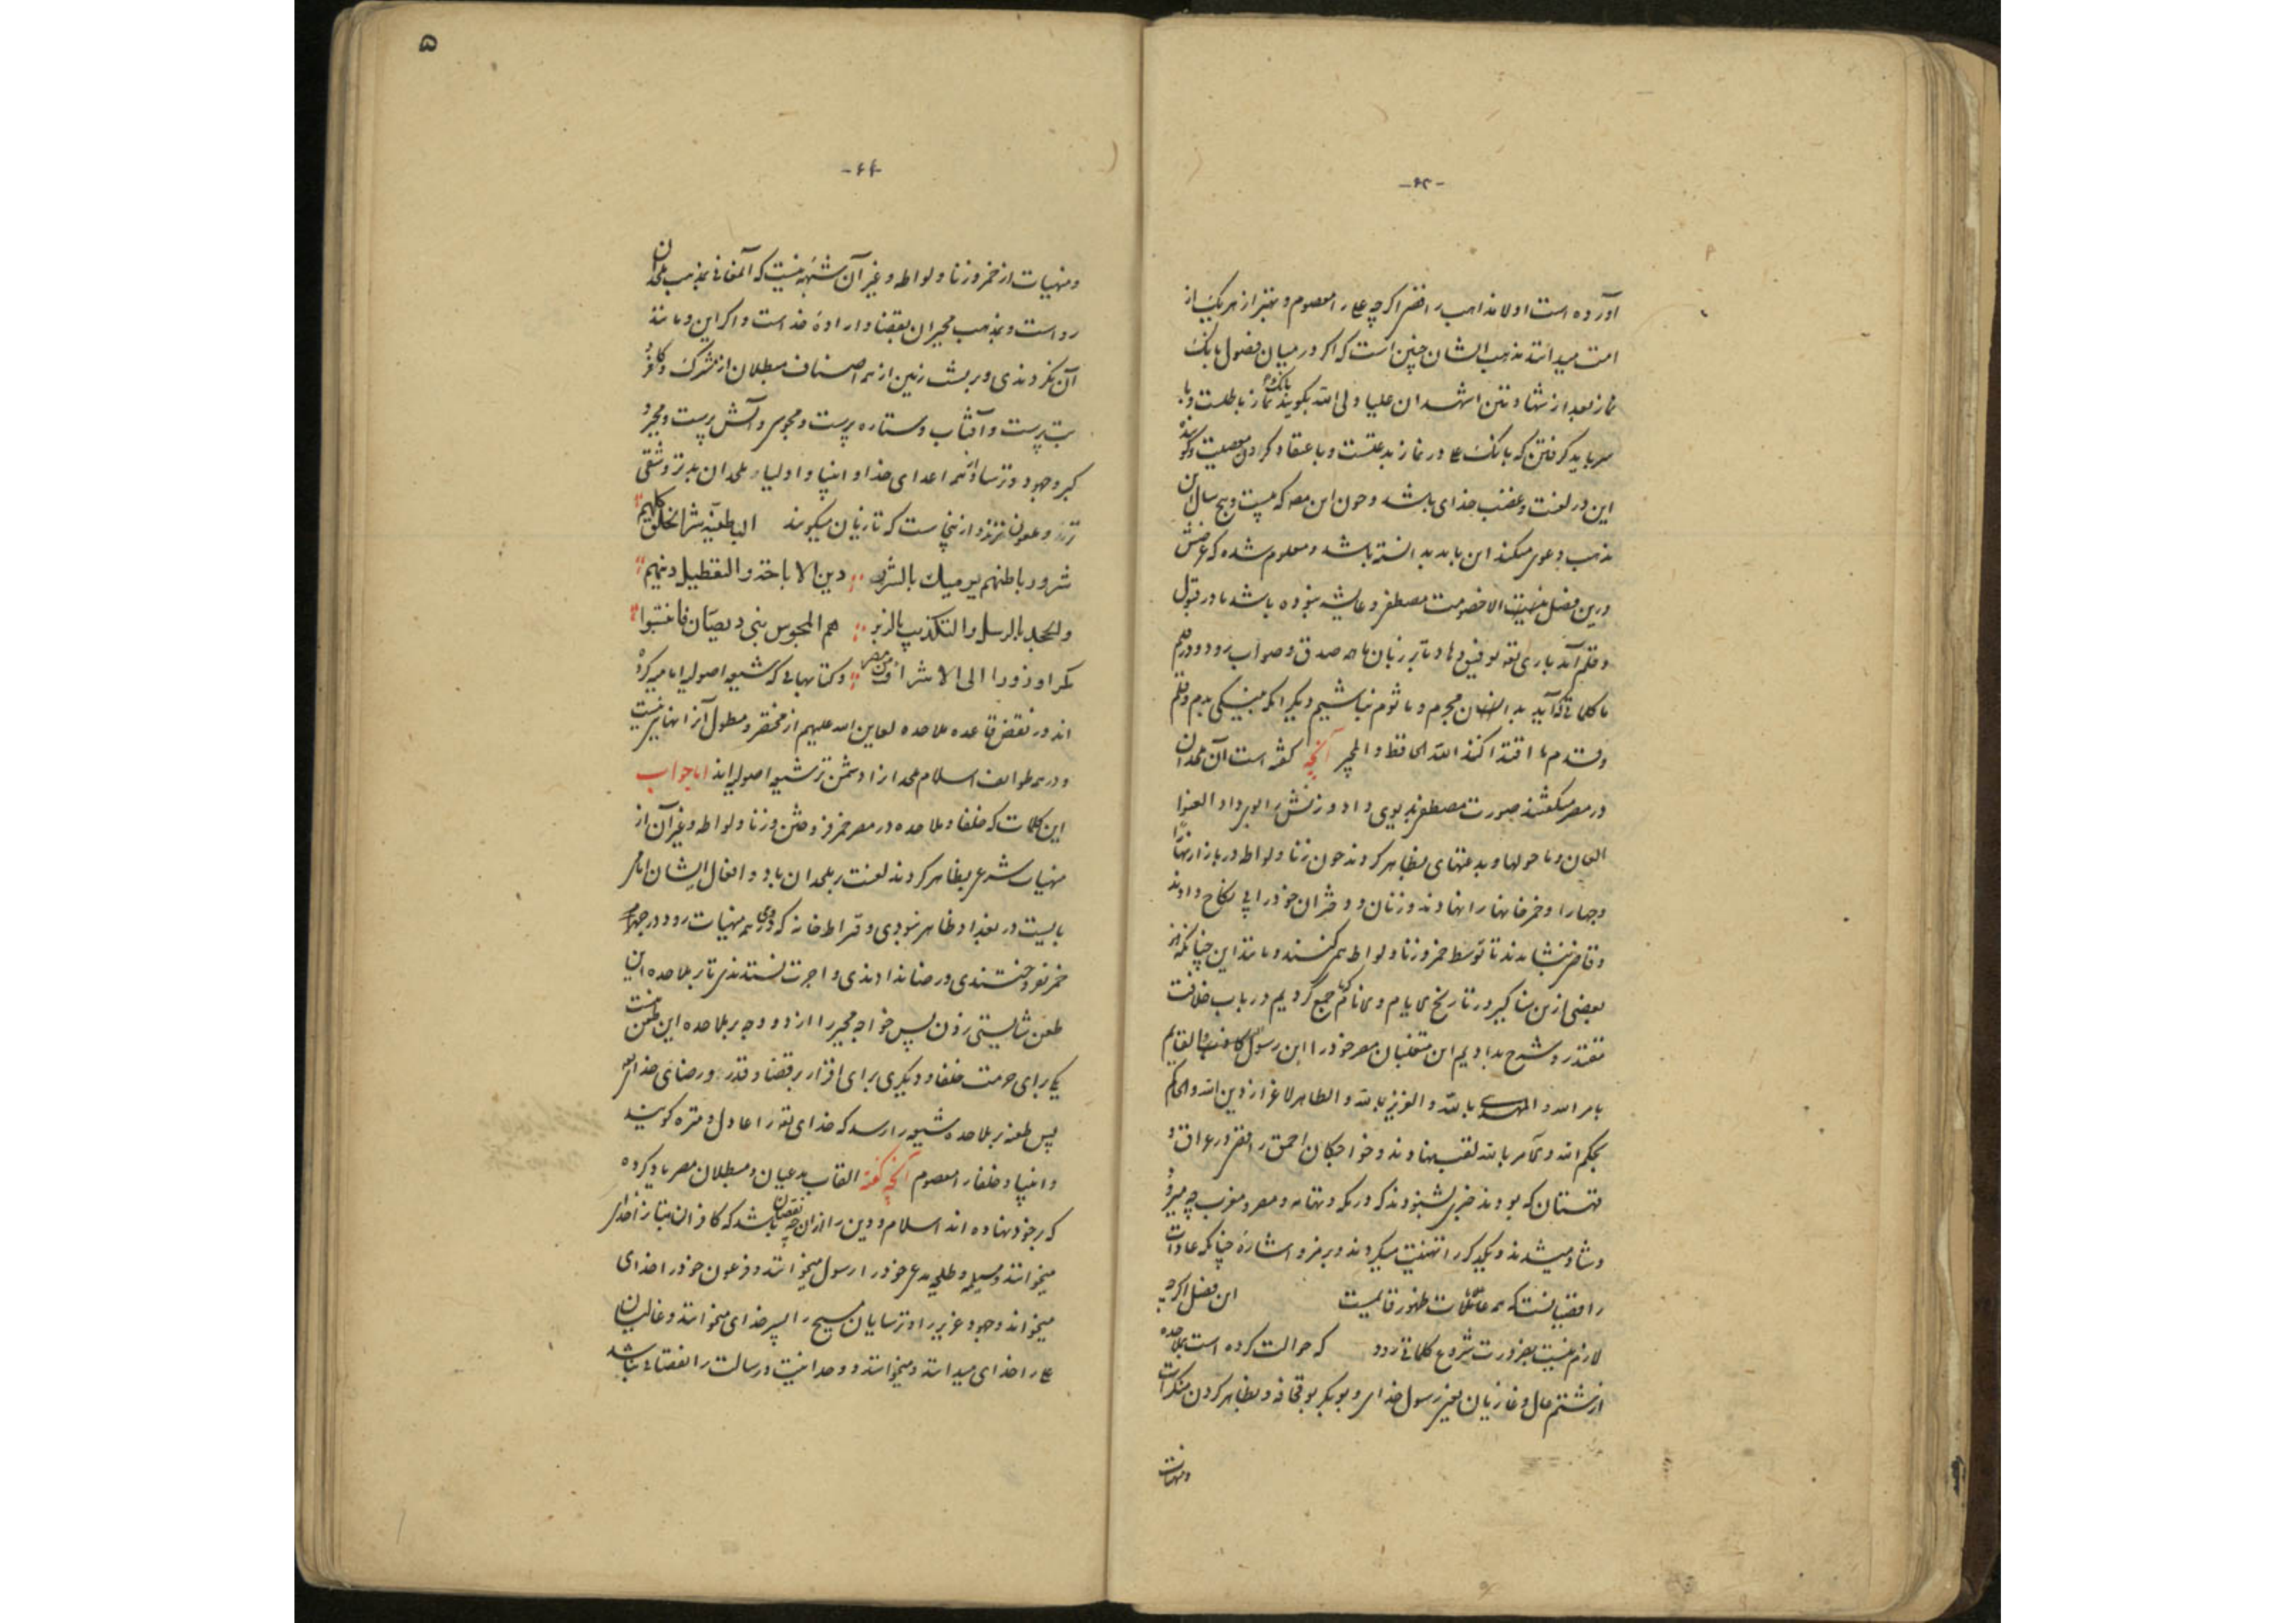 -۶۳-
آورده است اولا مذاهب رافضی اگرچه علی را معصوم و بهتر از هریک از
امت میدانند مذهب ایشان چنین است که اگر در میان فصول بانگ
نماز بعد از شهادتین اشهد ان علیا ولی الله بگویند بانگ و نماز باطلست و با
سر باید گرفتن که بانگ علی در نماز بدعتست و باعتقاد کردن معصیت و گوینده
این در لعنت و غضب خدای باشد و چون این مصر که بیست و پنج سال این
مذهب دعوی میکند این باید بدانسته باشد و معلوم شده که غرضش
درین فصل نیست الا خصومت مصطفی و عایشه نبوده باشد ما در قبول
و قلم آید باری تعالی توفیق دهاد تا بر زبان ما همه صدق و صواب رود و در قلم
ما کلماتی که آید بدانسان مجرم و ماثوم نباشیم دیگر آنکه به نیکی بدم و قلم
و قدم ما اقتدا کنند انه الحافظ والمجیر آنچه گفته است آن ملحدان
در مصر میگفتند صورت مصطفی بدیوی داد و زنش را بوبر داد العنوا
العان و ما حولها و بدعتهای بظاهر کردند چون زنا و لواطه در بازارها
و چهارا و خمرخانها را نهادند و زنان و دختران خود را بی نکاح دادند
و قاضی بنشاندند تا توسط خمر و زنا و لواطه میکنند و مانند این چنانکه
بعضی از این مناکیر در تاریخ ایام و می نام جمع کردیم در باب خلافت
مقتدر و شرح بدادیم این متغلبان مصر خود را ابن رسول الله گفتند و القایم
بامر الله و المهدی بالله و العزیز بالله و الطاهر لاعزاز دین الله و الحاکم
بحکم الله و الآمر بالله لقب نهادند و خواجگان احمق رافضی در عراق و
قهستان که بودند خبر می‌شنودند که در مکه و تهامه و مصر و مغرب چه میرود
و شاد میشدند و یکدیگر را تهنیت میکردند و برمز و اشاره چنانکه عادت
رافضیانست که همه علامات ظهور قایمست این فصل اگرچه
لازم نیست بضرورت شروع کلماتی رود که حوالت کرده است بملاحده
از شتم عال و غازیان بغیر رسول خدای و بوبکر بوقحافه و بظاهر کردن منکرات
و منهیات
-۶۴-
و منهیات از خمر و زنا و لواطه و غیر آن شبهه نیست که آنمعانی بمذهب ملحدان
رواست و بمذهب مجبران بقضا و اراده خداست و اگر این و مانند
آن نکردندی و بر پشت زمین از همه اصناف مبطلان از مشرک و کافر و
بت پرست و آفتاب و ستاره پرست و مجوس و آتش پرست و مجبر و
گبر و جهود و ترسا و همه اعدای خدا و انبیا و اولیا ملحدان بدتر و شقی
تر و ملعون‌ترند و ازینجاست که تازیان میگویند الباطنیة شر الخلق کلهم
شرور باطنهم یومیک بالشرر دین الاباحة والتعطیل دینهم
والجحد بالرسل والتکذیب بالزبر هم المجوس بنی دیصان فانتسبوا
مکرا و زورا الی الاشراف من مضر و کتابهائی که شیعه اصولیه امامیه کرده
اند در نقض قاعده ملاحده لعاین الله علیهم از مختصر و مطول آنرا نهایت نیست
و در همه طوایف اسلام ملحد را از او دشمن تر شیعه اصولیه اند اما جواب
این کلمات که خلفا و ملاحده در مصر خمر فروختن و زنا و لواطه و غیر آن از
منهیات شرع بظاهر کردند لعنت بر ملحدان باد و افعال ایشان اما می
بایست در بغداد ظاهر نبودی و قراطخانه که دروی همه منهیات رود در چهار
خمر نفروختندی و رضا ندادندی و اجرت نستدندی تا بر ملاحده این
طعن شایستی زدن پس خواجه مجبر را از دو وجه بر ملاحده این طعن نیست
یکی برای حرمت خلفا و دیگری برای اقرار بر قضا و قدر و رضای خدای تعالی
پس طعنه بر ملاحده شیعه را رسد که خدای تعالی را عادل و منزه گویند
و انبیا و خلفا را معصوم آنچه گفته القاب مدعیان و مبطلان مصر یاد کرده
که بر خود نهاده اند اسلام و دین را از آن چه نقصان باشد که کافران بتان را خدای
میخوانند و مسیلمه و طلیحه مدعی خود را رسول میخوانند و فرعون خود را خدای
میخواند و جهود عزیر را و ترسایان مسیح را پسر خدای میخوانند و غالیان
علی را خدای میدانند و میخوانند و وحدانیت و رسالت را نقصانی نباشد